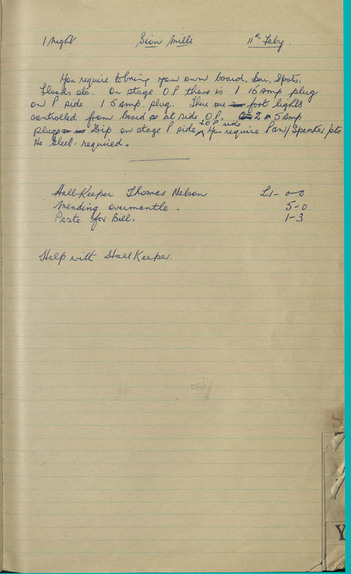 1 Night Sion Mills 11th Feby.
You require to bring your own board, Bar, Spots,
Floods etc. On stage O.P there is 1 15 Amp plug
on P side 1 5 amp. plug. There are foot lights
controlled from board at side O.P. 2 5 Amp
plugs Dip on stage P side & O.P side You require Pan/Speaker/pts
No Elect. required.
Hall-Keeper Thomas Nelson £1-0-0
Mending overmantle. 5-0
Paste for Bill. 1-3
Help with Hall Keeper
Y